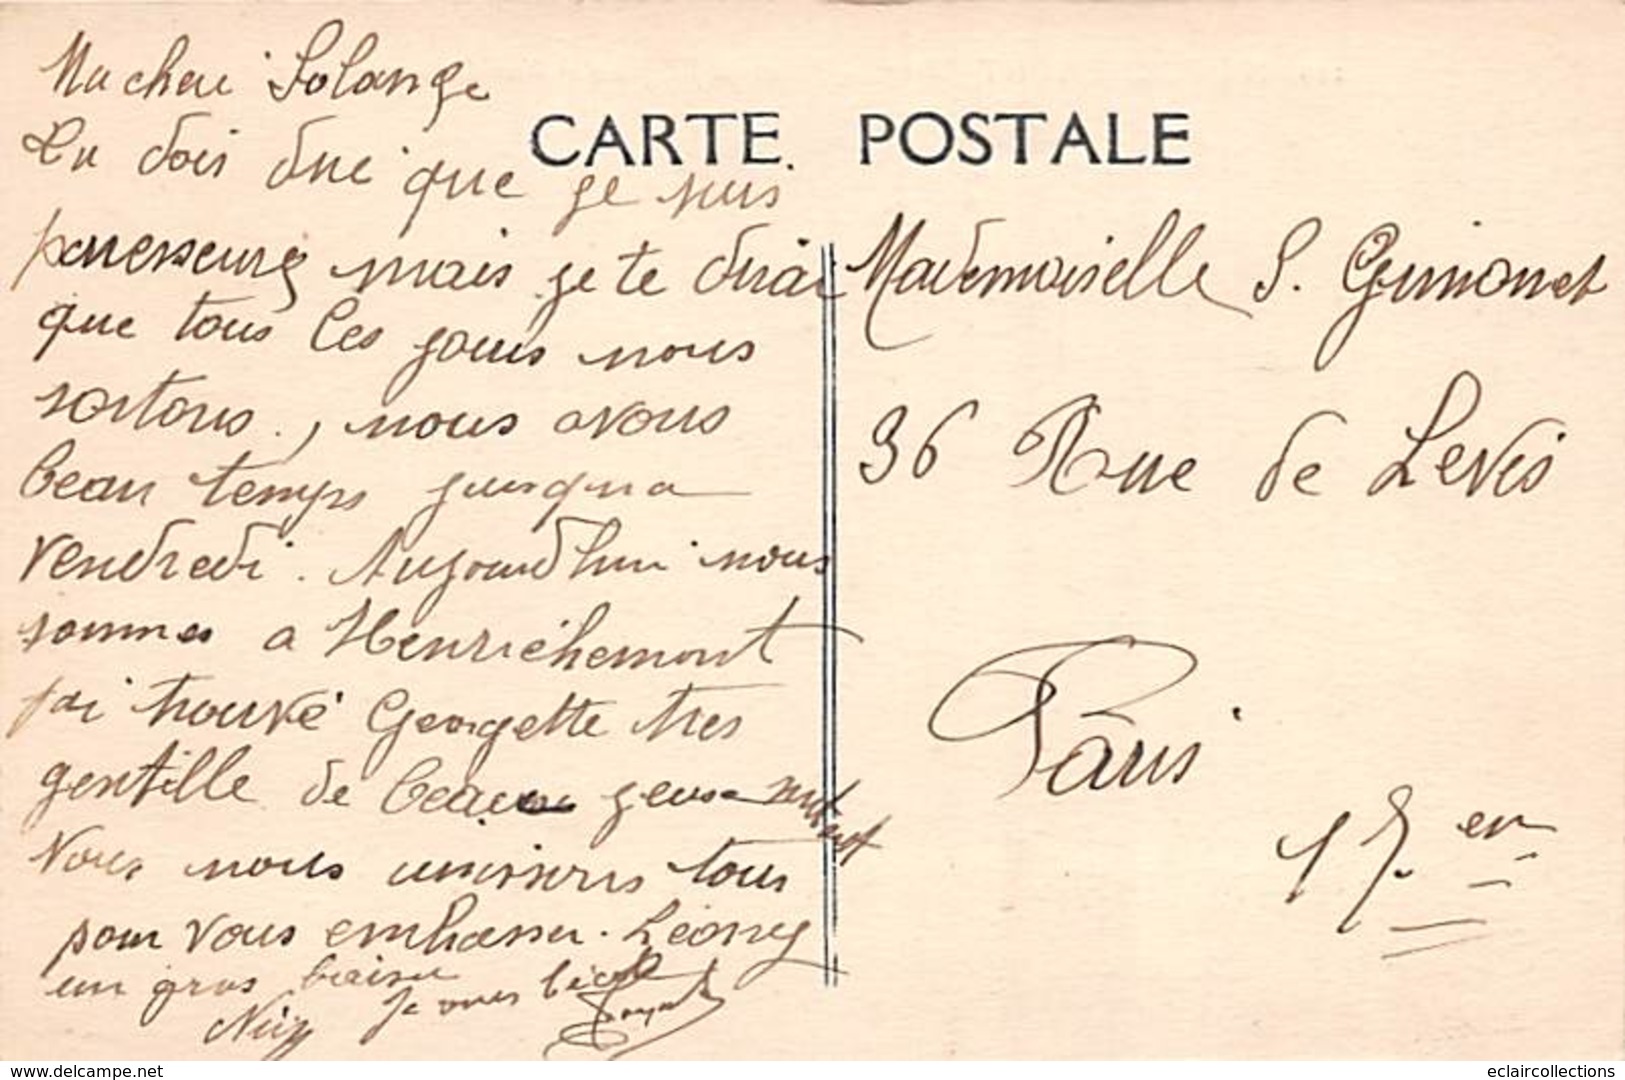 Ma cheri Solange
Tu dois dire que je suis
paresseuse mais je te dirai
que tous les jours nous
sortons, nous avons
beau temps jusqua
vendredi. Aujourd'hui nous
sommes a Henrichemont
j'ai trouvé Georgette tres
gentille de beaux
Nous nous unissons tous
pour vous embrasser. Léony
un gros baiser
Je vous
CARTE POSTALE
Mademoiselle S. Guimonet
36 Rue de Levis
Paris
17. em
www.delcampe.net
eclaircollections